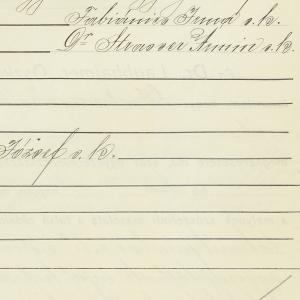 Fabiánics Imná s. k.
Dr Strasser Ármin s. k.
József s. k.